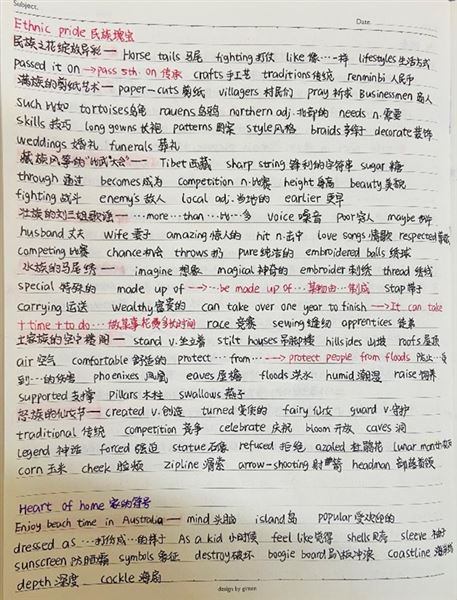 Subject. Date.
Ethnic pride 民族瑰宝
民族之花绽放异彩— Horse tails 马尾 fighting 打仗 like 像…一样 lifestyles 生活方式
passed it on →pass sth. on 传承 crafts 手工艺 traditions 传统 renminbi 人民币
满族的剪纸艺术— paper-cuts 剪纸 villagers 村民们 pray 祈求 Businessmen 商人
such 比如 tortoises 乌龟 ravens 乌鸦 northern adj. 北部的 needs n. 需要
skills 技巧 long gowns 长袍 patterns 图案 style 风格 braids 辫子 decorate 装饰
weddings 婚礼 funerals 葬礼
藏族风筝的"比武大会"— Tibet 西藏 sharp string 锋利的 sugar 糖
through 通过 becomes 成为 competition n. 比赛 height 身高 beauty 美貌
fighting 战斗 enemy's 敌人 local adj. 当地的 earlier 更早
壮族的刘三姐歌谣— …more…than…比…多 voice 嗓音 Poor 穷人 maybe
husband 丈夫 wife 妻子 amazing 惊人的 hit n. 击中 love songs 情歌 respected 尊敬
competing 比赛 chance 机会 throws 扔 pure 纯洁的 embroidered balls 绣球
水族的马尾绣— imagine 想象 magical 神奇的 embroider 刺绣 thread 绣线
special 特殊的 made up of —→ be made up of…某物由…制成 stop 停
carrying 运送 wealthy 富裕的 can take over one year to finish →It can take
+ time + to do …做某事花费多长时间 race 竞赛 sewing 缝纫 apprentices 徒弟
土家族的空中楼阁— stand v. 坐立着 stilt houses 吊脚楼 hillsides 山坡 roofs 屋顶
air 空气 comfortable 舒适的 protect…from…→protect people from floods
到…的伤害 phoenixes 凤凰 eaves 屋檐 floods 洪水 humid 潮湿 raise 饲养
supported 支撑 Pillars 木柱 swallows 燕子
怒族的仙女节— created v. 创造 turned 变化的 fairy 仙女 guard v. 守护
traditional 传统 competition 竞争 celebrate 庆祝 bloom 开放 caves 洞
legend 神话 forced 强迫 statue 石像 refused 拒绝 azalea 杜鹃花 lunar month
corn 玉米 cheek 脸颊 zipline 溜索 arrow-shooting 射箭 headman 部落首领
Heart of home 家的符号
Enjoy beach time in Australia— mind 头脑 island 岛 popular 受欢迎的
dressed as …打扮成…的样子 As a kid 小时候 feel like 觉得 shells 贝壳 sleeve 袖子
sunscreen 防晒霜 symbols 象征 destroy 破坏 boogie board 趴板冲浪 coastline 海岸线
depth 深度 cockle 海扇
design by gimen